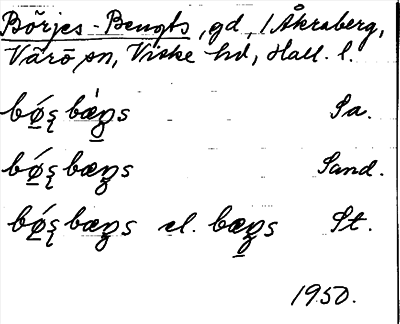 Börjes-Bengts, gd, /Åkraberg,
Värö sn, Viske hd, Hall. l.
bǿ̱ʂ bæ̀ŋ̱s Sa.
bǿ̱ʂ bæŋs Sand.
bǿ̱ʂ bæŋs el. bæ̱ŋs St.
1950.